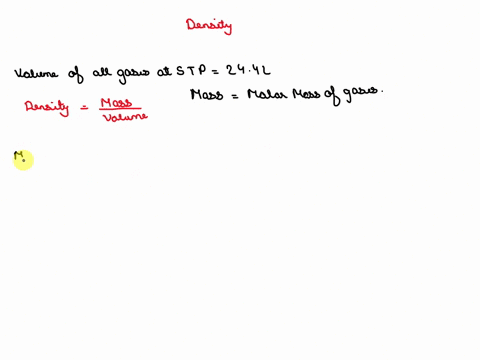 Density
Volume of all gases at STP = 24.4L
Density = Mass / Volume
Mass = Molar Mass of gases.
M